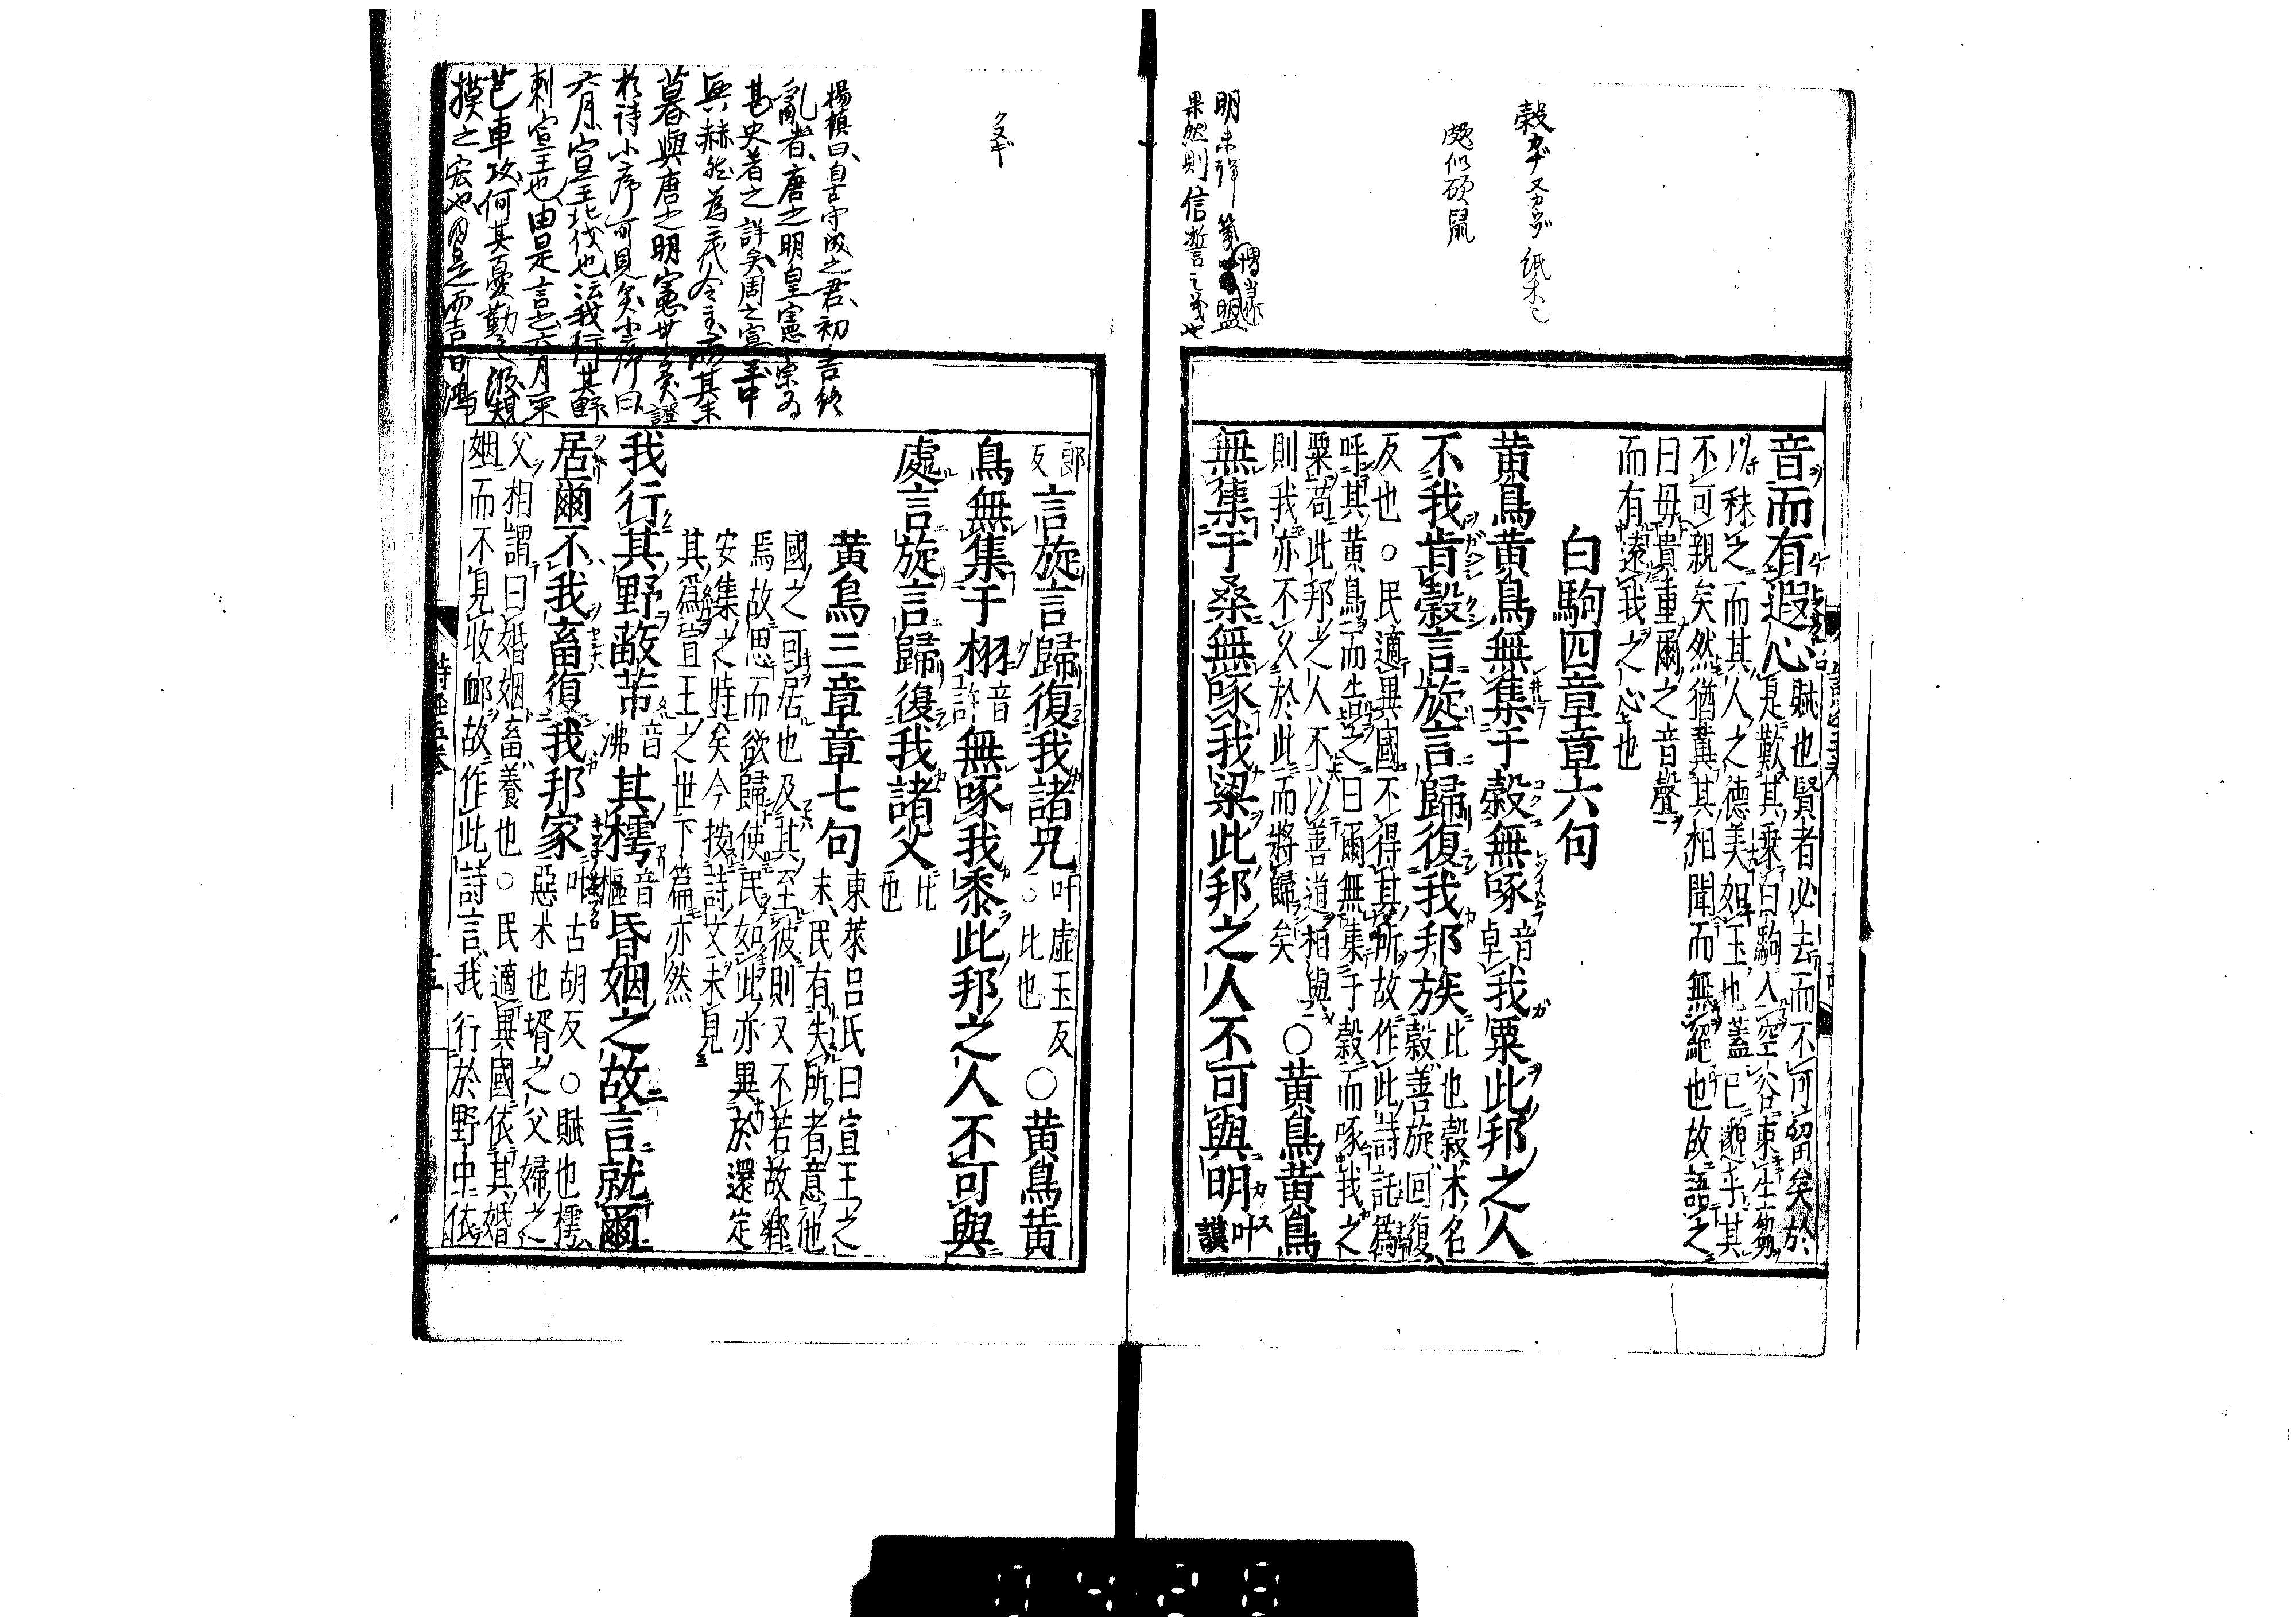 穀カヂ又カウゾ紙木也
頗似碩鼠
果然則信誓之義也
音而有遐心賦也賢者必去而不可留矣於
是歎其乗白駒入空谷束生芻
以秣之而其人之德美如玉也蓋已邈乎其
不可親矣然猶冀其相聞而無絕也故語之
曰毋貴重爾之音聲
而有遠我之心也
白駒四章章六句
黄鳥黄鳥無集于穀無啄音卓我粟此邦之人
不我肯穀言旋言歸復我邦族比也穀木名
穀善旋回復
反也○民適異國不得其所故作此詩託爲
呼其黄鳥而告之曰爾無集于穀而啄我之
粟苟此邦之人不以善道相與
則我亦不久於此而將歸矣
○黄鳥黄鳥
無集于桑無啄我粱此邦之人不可與明叶謨
郎反言旋言歸復我諸兄叶虛王反○比也○黄鳥黄
鳥無集于栩音許無啄我黍此邦之人不可與
處言旋言歸復我諸父比也
黄鳥三章章七句東萊呂氏曰宣王之
末民有失所者意他
國之可居也及其至彼則又不若故鄉
焉故思而欲歸使民如此亦異於還定
安集之時矣今按詩文未見
其爲宣王之世下篇亦然
我行其野蔽芾音沸其樗音樞昏姻之故言就爾
居爾不我畜復我邦家叶古胡反○賦也樗
惡木也壻之父婦之
父相謂曰婚姻畜養也○民適異國依其婚
姻而不見收卹故作此詩言我行於野中依
クヌギ
楊慎曰自古守成之君初吉終
亂者唐之明皇憲宗為
甚史著之詳矣周之宣王中
興赫然為三代令主而其末
暮與唐之明憲世矣證
於詩小序可見矣小序曰
六月宣王北伐也云我行其野
刺宣王也由是言之六月采
芑車攻何其憂勤之
摸之宏也由是而吉日鴻